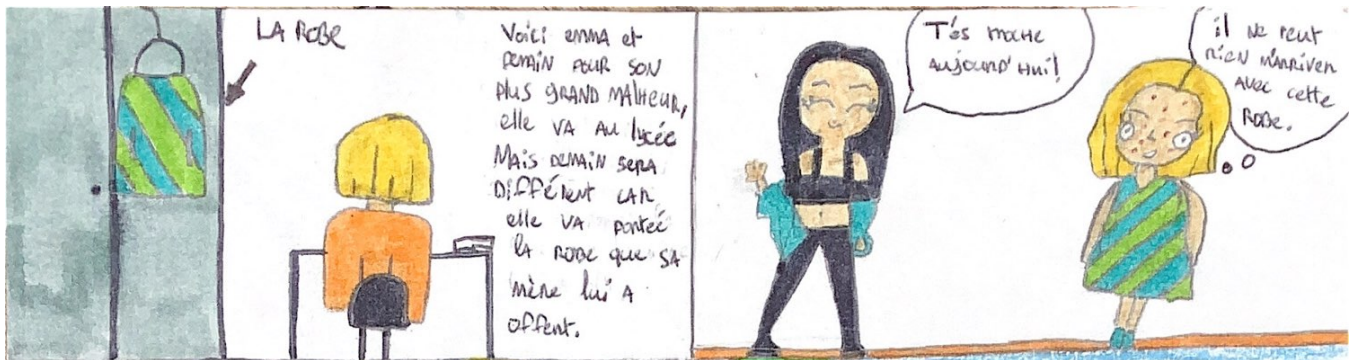 LA ROBE
Voici EMMA et
DEMAIN POUR SON
plus GRAND MALHEUR,
elle VA AU lycée
MAIS DEMAIN SERA
Différent CAR
elle VA portée
LA ROBE que SA
mère lui A
offert.
T'es moche
AUJOURD'HUI!
il NE PEUT
RIEN M'ARRIVER
AVEC cette
ROBE.